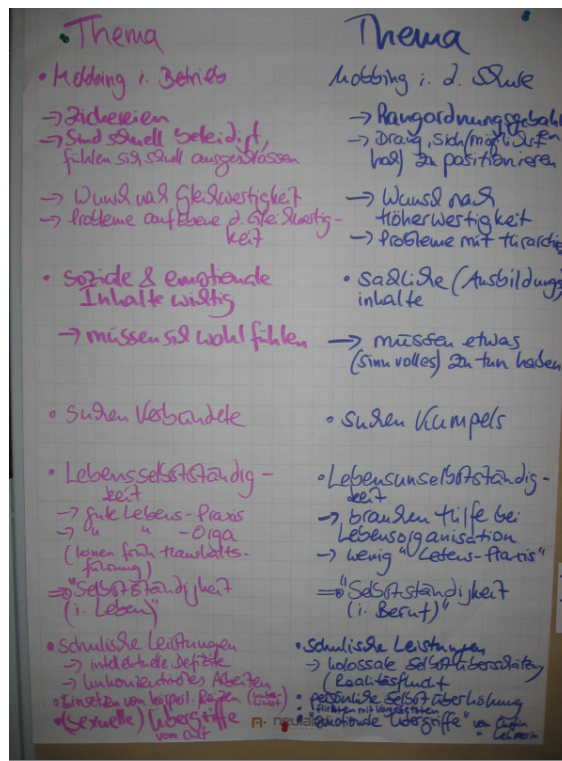 Thema
• Mobbing i. Betrieb
→ Zickereien
→ Sind schnell beleidigt,
fühlen sich schnell ausgeschlossen
→ Wunsch nach Gleichwertigkeit
→ Probleme auf Ebene d. Gleichwertig-
keit
• soziale & emotionale
Inhalte wichtig
→ müssen sich wohl fühlen
• suchen Verbündete
• Lebensselbstständig-
keit
→ gute Lebens-Praxis
→ " " -Orga
(lernen früh Haushalts-
führung)
⇒ "Selbstständigkeit
(i. Leben)"
• schulische Leistungen
→ intellektuelle Defizite
→ unkonzentriertes Arbeiten
• Einsetzen von körperl. Reizen
• (sexuelle) Übergriffe
vom Chef
Thema
Mobbing i. d. Schule
→ Rangordnungsgebahren
→ Drang, sich (möglichst
hoch) zu positionieren
→ Wunsch nach
Höherwertigkeit
→ Probleme mit Hierarchie
• sachliche (Ausbildungs)
inhalte
→ müssen etwas
(sinnvolles) zu tun haben
• suchen Kumpels
• Lebensunselbstständig-
keit
→ brauchen Hilfe bei
Lebensorganisation
→ wenig "Lebens-Praxis"
⇒ "Selbstständigkeit
(i. Beruf)"
• schulische Leistungen
→ kolossale Selbstüberschätzung
(Realitätsflucht
• persönliche Selbstüberhöhung
flirten mit Vorgesetzten
• "emotionale Übergriffe" von Chefin
• Lehrerin